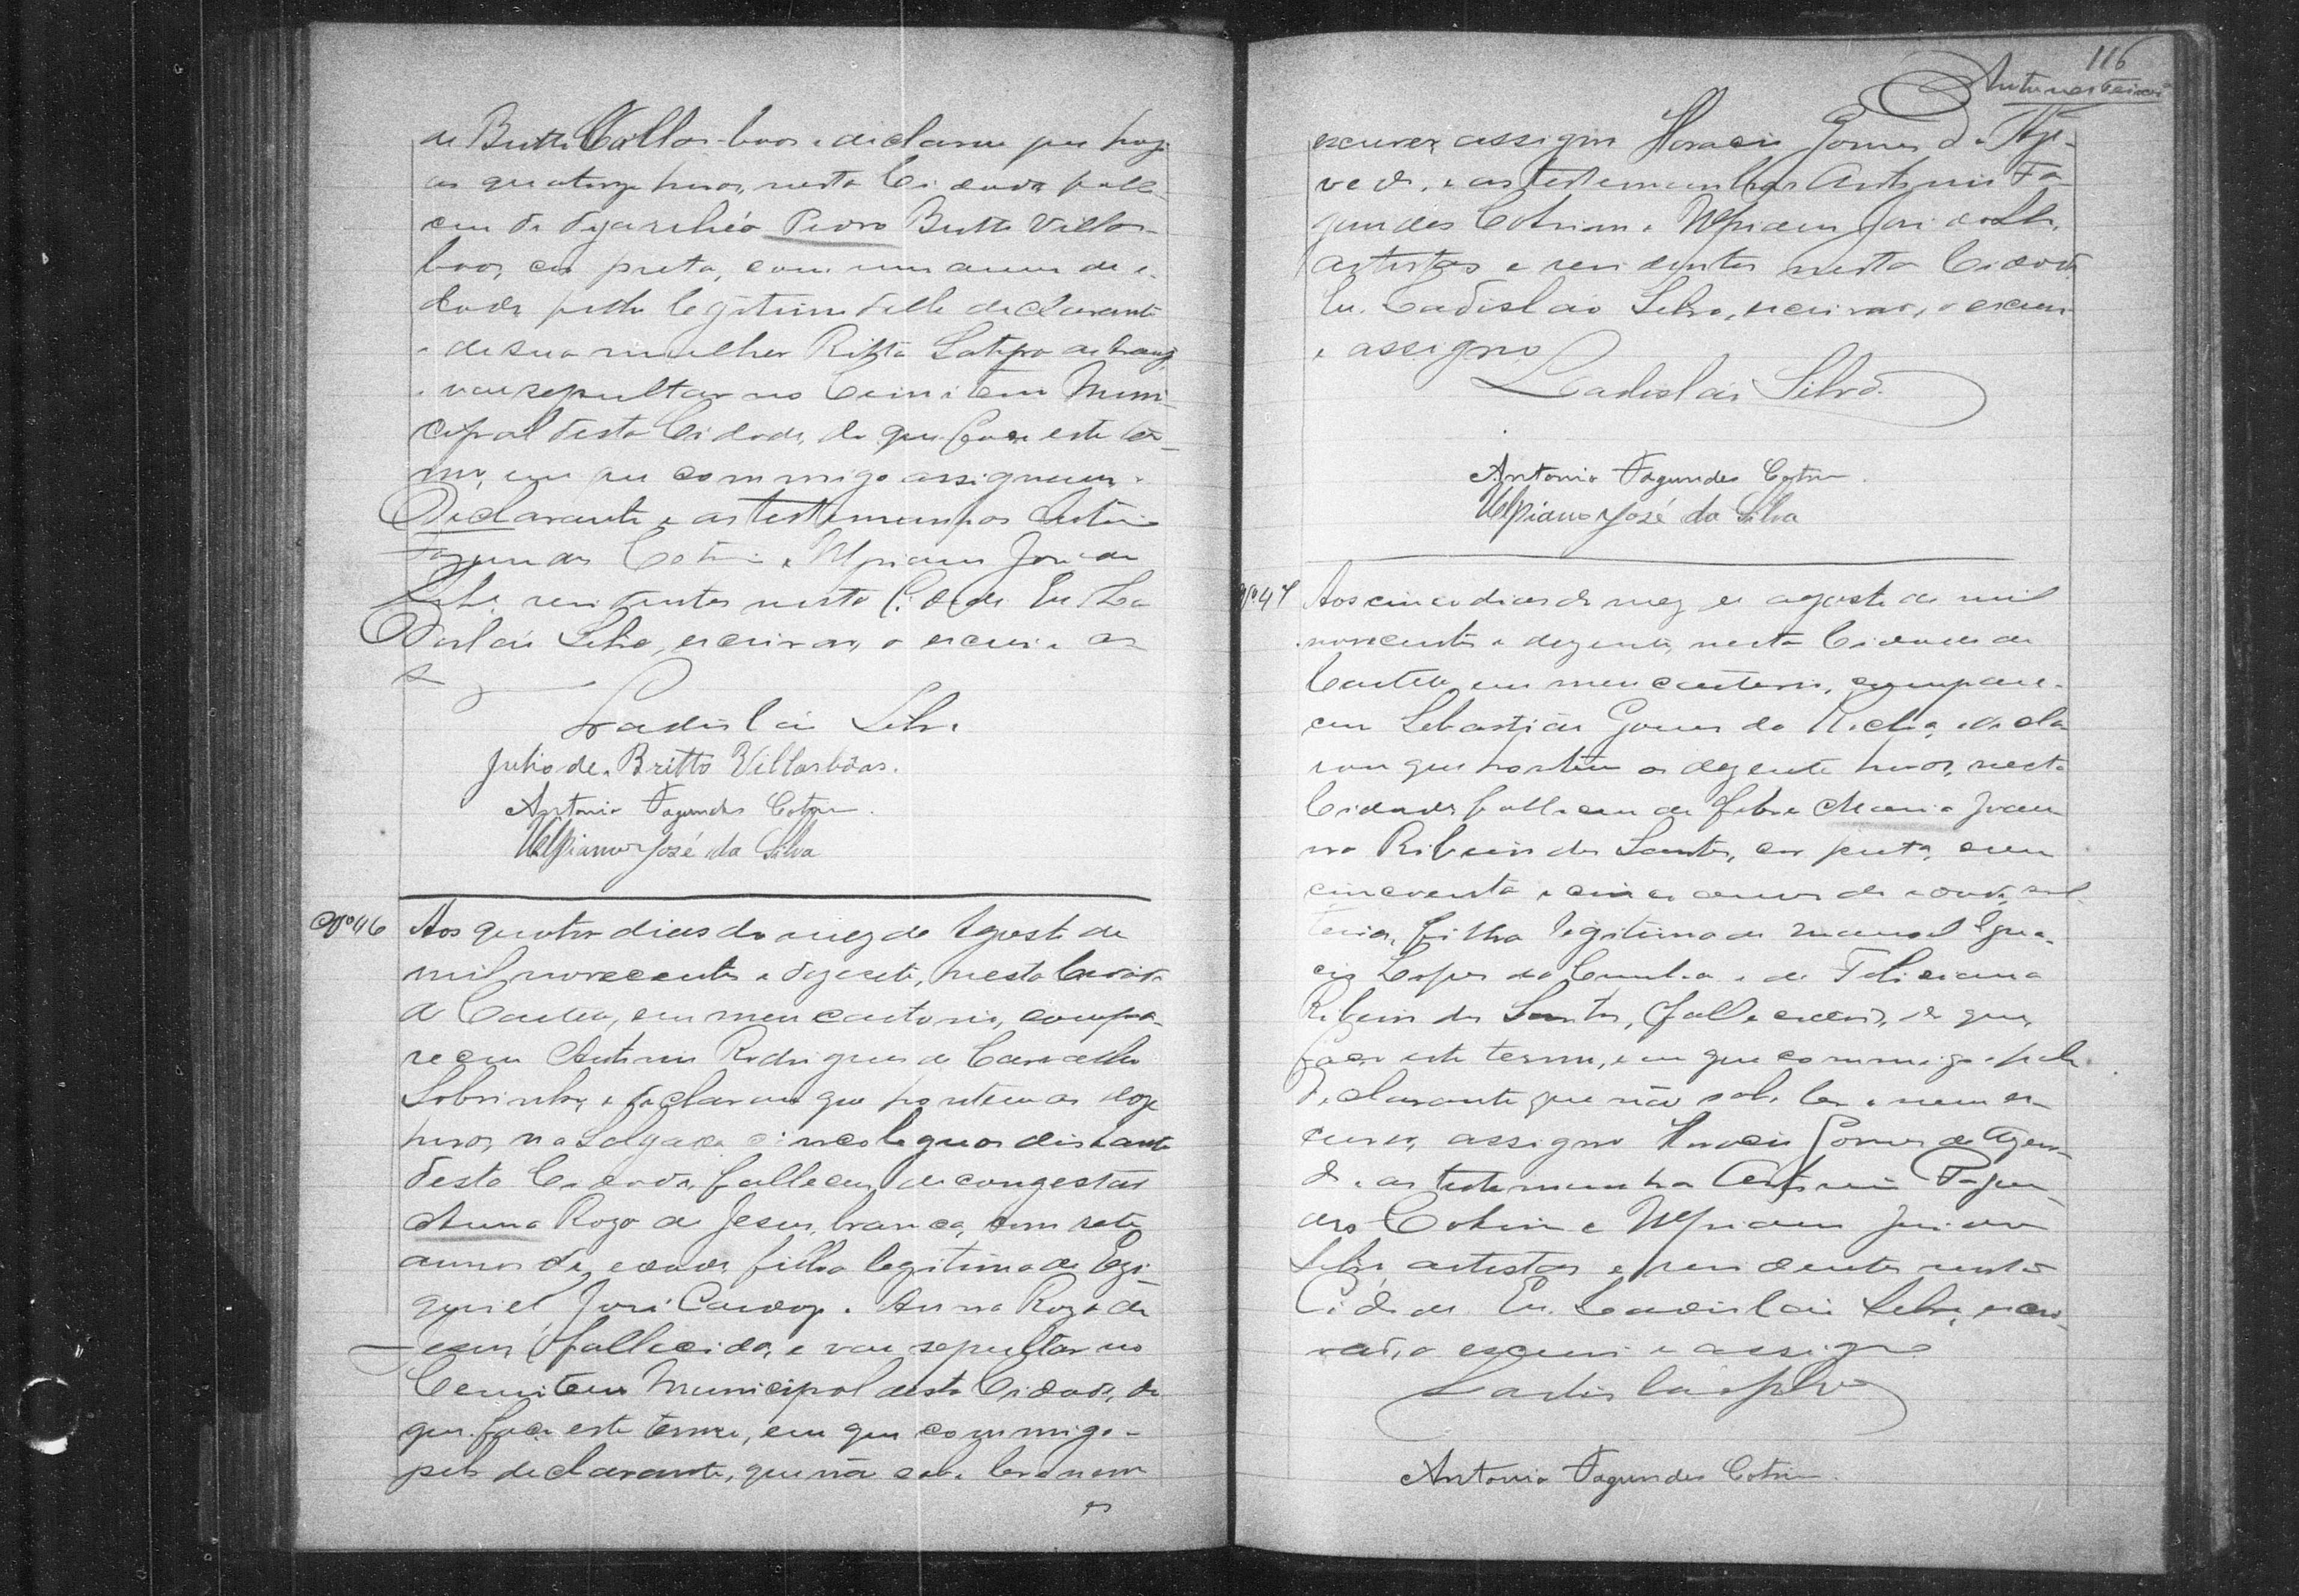 de Britto Villas-boas e declarou que hoje
as quatorze horas, nesta Cidade falle-
ceu de dyarrhéa Pedro Britto Villas-
boas, cor preta, com um anno de e-
dade filho legitimo delle declarante
e de sua mulher Ritta
e vae sepultar no Cemiterio Muni-
cipal desta Cidade, do que faço este ter-
mo, em que commigo assignam o
Declarante e as testemunhas Antonio
Fagundes Cotrim e Ulpiano José da
Silva residentes nesta Cidade Eu La
dislau Silva, escrivão, o escrevi e as
Ladislau Silva
Julio de Britto Villasbôas.
Antonio Fagundes Cotrim.
Ulpiano José da Silva
Nº 46 Aos quatro dias do mez de Agosto de
mil novecentos e dezesete, nesta Cidade
de Caeteté, em meu cartorio, compa-
receu Antonio Rodrigues de Carvalho
Sobrinho, e declarou que hontem as doze
horas, na Salgada cinco leguas distante
desta Cidade, falleceu de congestão
Anna Roza de Jesus, branca, com sete
annos de edade filha legitima de Eze-
quiel José Cardozo e Anna Roza de
Jesus, fallecida, e vae sepultar no
Cemiterio Municipal desta Cidade, do
que faço este termo, em que commigo e
pelo declarante, que não sabe ler e nem
es
116
Antunes Teixeira
escrever, assigna Horacio Gomes de Aze-
vedo, e as testemunhas Antonio Fa-
gundes Cotrim e Ulpiano José da Silva,
artistas e residentes nesta Cidade
Eu. Ladislao Silva, escrivão, o escrevi
e assigno
Ladislau Silva.
Antonio Fagundes Cotrim.
Ulpiano José da Silva
Nº 47 Aos cinco dias do mez de agosto de mil
novecentos e dezesete, nesta Cidade de
Caeteté em meu cartorio, compare-
ceu Sebastião Gomes da Rocha, e decla
rou que hontem as dezesete horas, nesta
Cidade falleceu de febre Maria Joan
na Ribeiro dos Santos, cor preta, com
cincoenta e cinco annos de edade, sol-
teira, filha legitima de Manoel Igna-
cio Lopes da Cunha e de Feliciana
Ribeiro dos Santos, fallecidos, do que
faço este termo, em que commigo e pelo
Declarante que não sabe ler e nem es-
crever, assigna Horacio Gomes de Azeve-
do e as testemunha Antonio Fagun-
des Cotrim e Ulpiano José da
Silva artistas e residentes nesta
Cidade Eu. Ladislau Silva, escri-
vão, o escrevi e assigno
Ladislau Silva
Antonio Fagundes Cotrim.